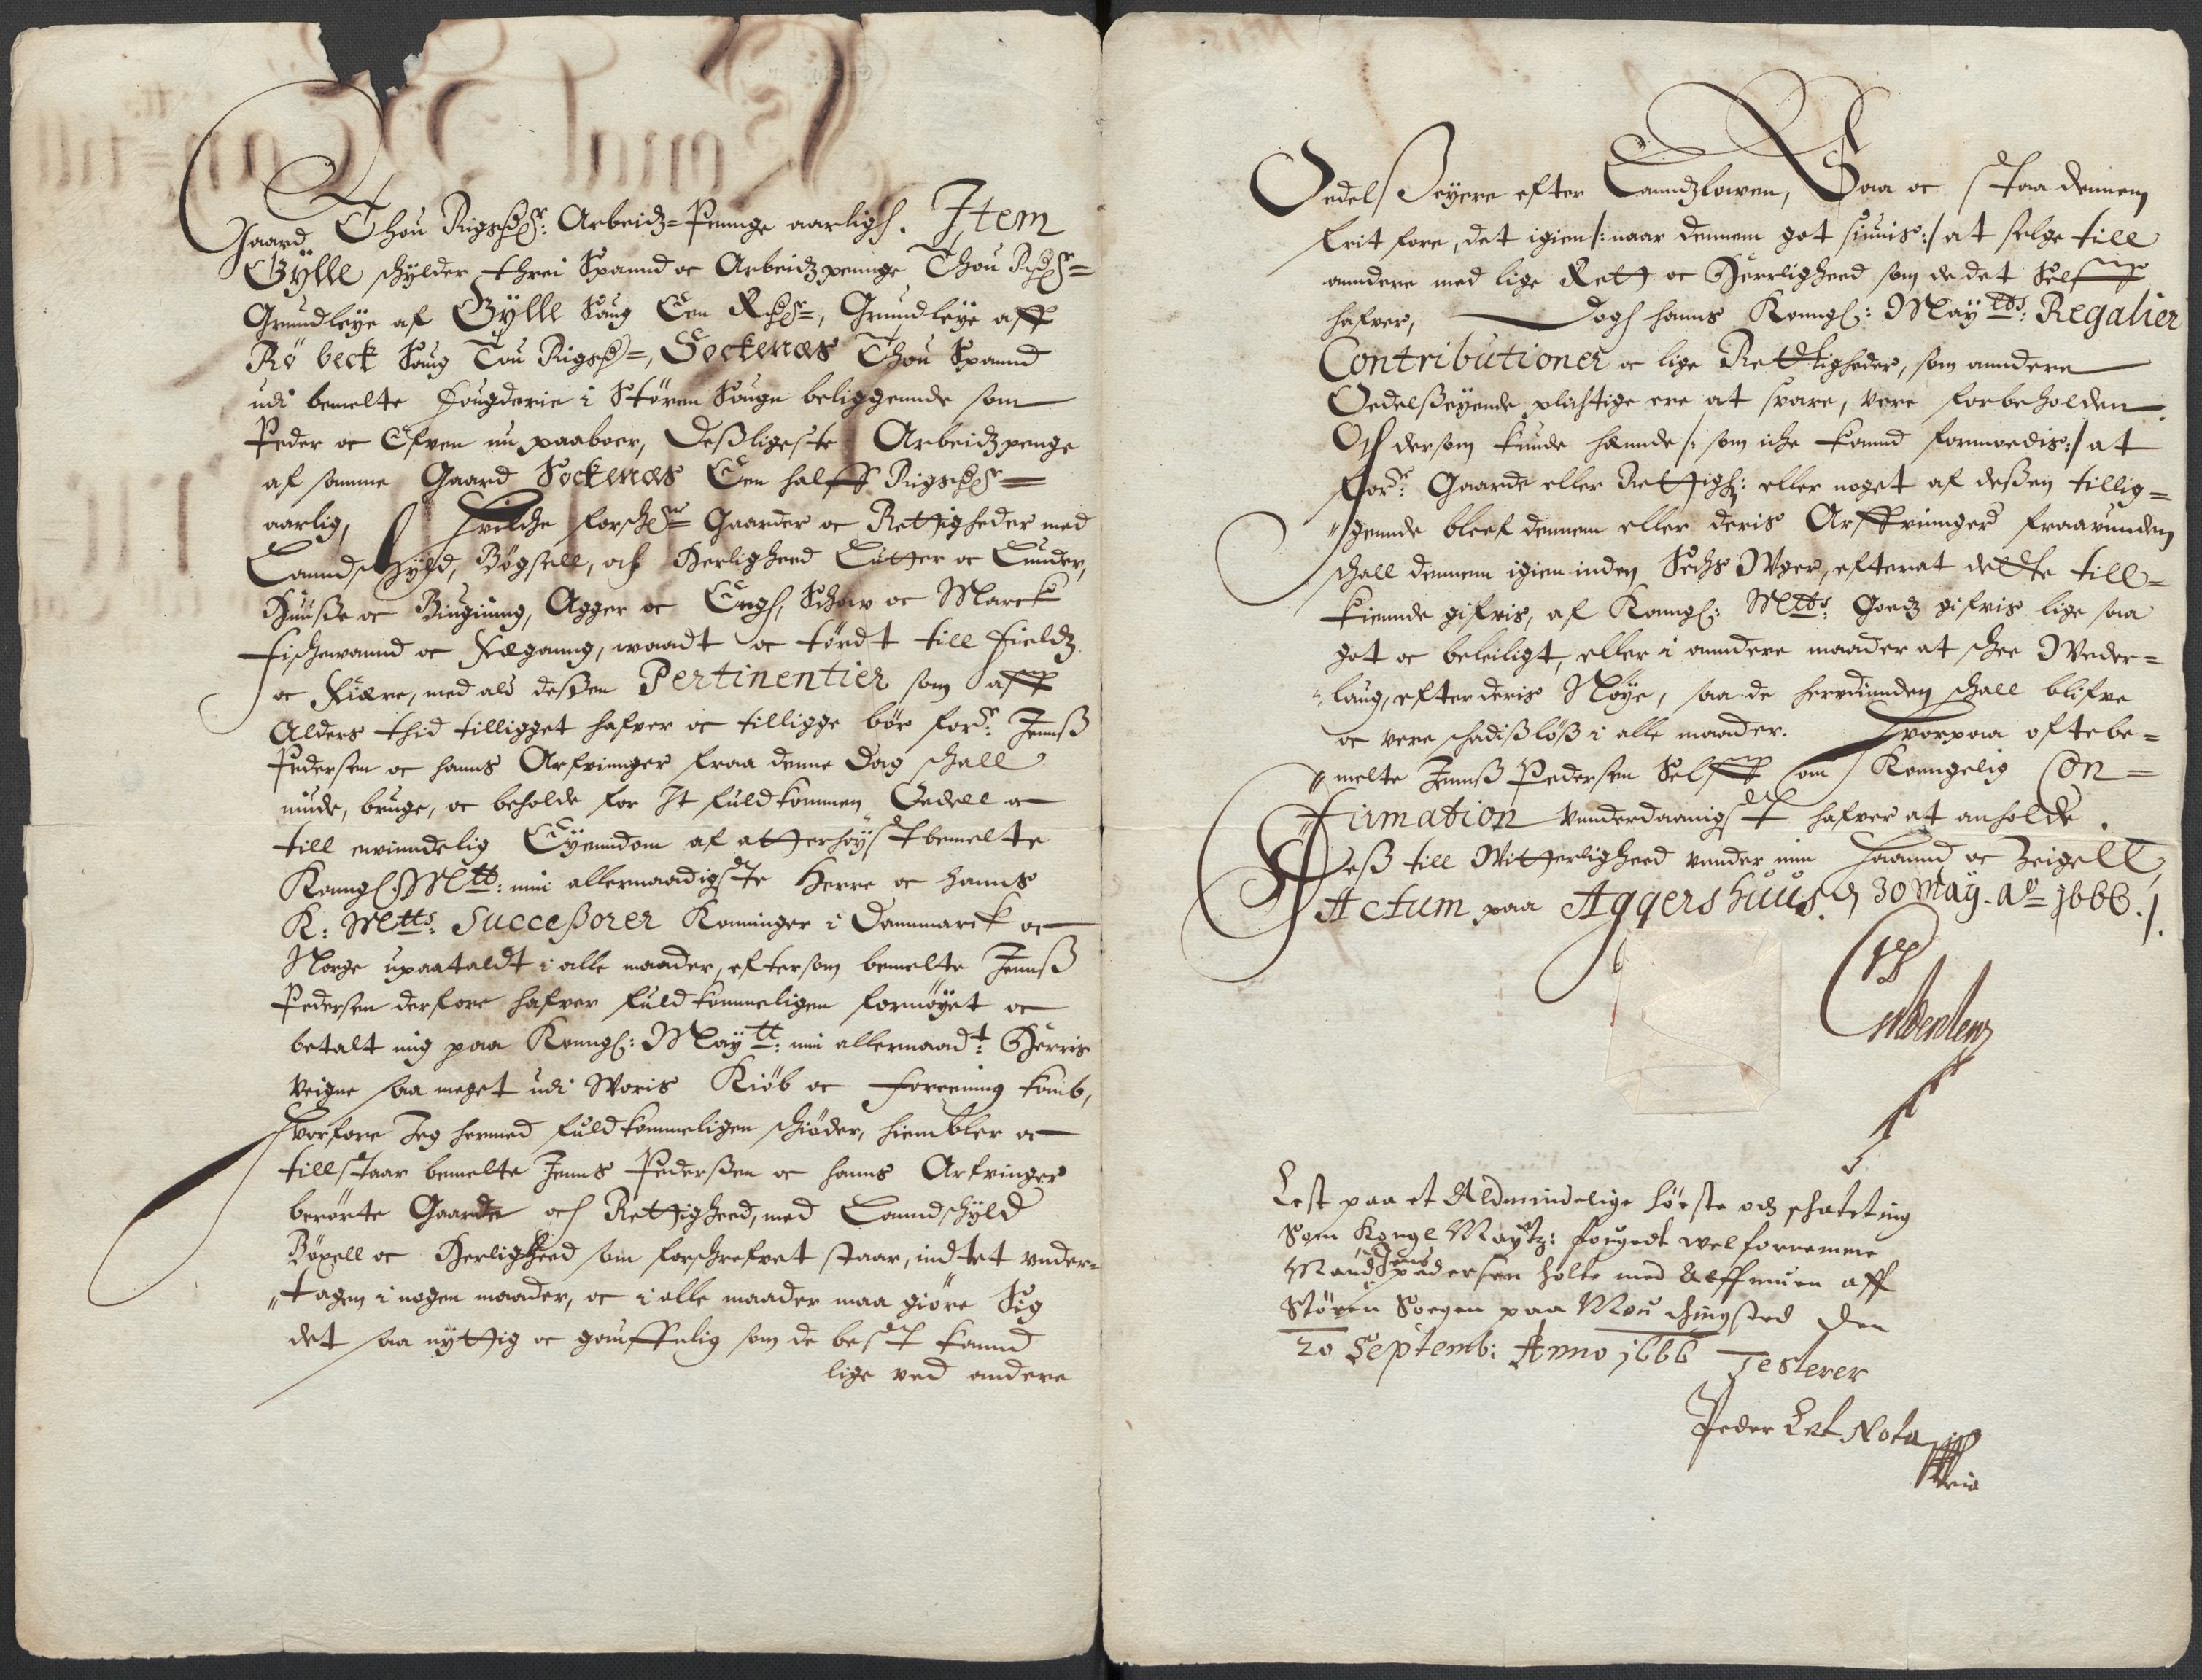 Gaard Thou Rigsdr: Arbeidz-Penge aarligh. Item
Gylle schylder threi Spannd oc Arbeidzpeninge Thou Rdr=
Grundleye af Gylle Saug Een Rdr=, Grundleye aff
Rö beck Saug Tou Rigsd=, Sockenæs Thou Spannd
udi bemelte Fougderie i Stören Sougn beliggennde som
Peder oc Efven nu paaboer, Deßligeste Arbeidzpenge
af samme Gaard Sockenæs Een halff Rigsdr=
aarlig, Hvilche forschne Gaarder oc Rettigheder med
Lanndschyld, Bögsell, och Herligheed Lutter oc Lunder,
Huuße oc Biugning, Agger oc Engh, Schow oc Marck
Fischevannd oc Fægang, waadt oc tördt till Fieldz
oc Fiære, med alt deßen Pertinentier som aff
Alders thid tilligget hafver oc tilligge bör forne: Jennß
Pedersen oc hanns Arfvinger fraa denne Dag schall
niude, bruge, oc beholde for It fuldkommen Oedell oc
till ewinndelig Eyenndom af atterhöystbemelte
Konngl: Mtt: min allernaadigste Herre oc hanns
K: Mtts: Succeßorer Konninger i Dannmarck oc
Norge upaataldt i alle maader, eftersom bemelte Jennß
Pedersen derfore hafver fuldkommeligen fornöyet oc
betalt mig paa Konngl: Maytt: min allernaadt: Herris
Veigne saa meget udi Woris Kiöb oc Foreening komb,
Hvorfore Jeg hermed fuldkommeligen schiöder, hiembler oc
tillstaar bemelte Jenns Pederßen oc hanns Arfvinger
berörte Gaarde och Rettigheed, med Lanndschyld
Böxell oc Herligheed som forschrefvet staar, indtet under-
tagen i nogen maader, oc i alle maader maa giöre Sig
det saa nyttig oc gauffnlig som de best kannd
lige ved andere
Oedelßeyere efter Lanndzlowen, Saa oc staa dennem
frit fore, det igien /: naar dennem got siunis :/ at selge till
anndere med lige Rett oc Herrligheed som de det Selff
hafver, Dogh hanns Konngl: Maytts: Regalier
Contributioner oc lige Rettigheder, som anndere
Oedelßeyende plichtige ere at svare, vere forbeholden.
Och dersom kunde hænnde /: som iche kannd formoedis :/ at
forne: Gaarde eller Rettigh: eller noget af deßen tillig-
gennde bleef dennem eller deris Arffvinger fraavunden
schall dennem igien inden Sechs Uger, efterat dette till-
kiennde gifvis, af Konngl: Mtts: Goedz gifvis lige saa
got oc beleiligt, eller i anndere maader at schee Weder-
laug, efter deris Nöye, saa de herudinnden schall blifve
oc vere schadißlöß i alle maader. Hvorpaa oftebe-
melte Jennß Pedersen Selff om Konngelig Con-
firmation unnderdaanigst hafver at anholde.
Deß till Witterligheed unnder min Haannd oc Zeigell,
Actum paa Aggershuus. d 30 May. Ao 1666./.
Lest paa et Aldmindelige höste och schatting
Som Kongl Maytz: fougedt welfornemme
Mand Jens Pedersen holte med Alffmuen aff
Stören Soegen paa Mou thingsted den
20 Septemb: Anno 1666 Testerer
Peder Nota